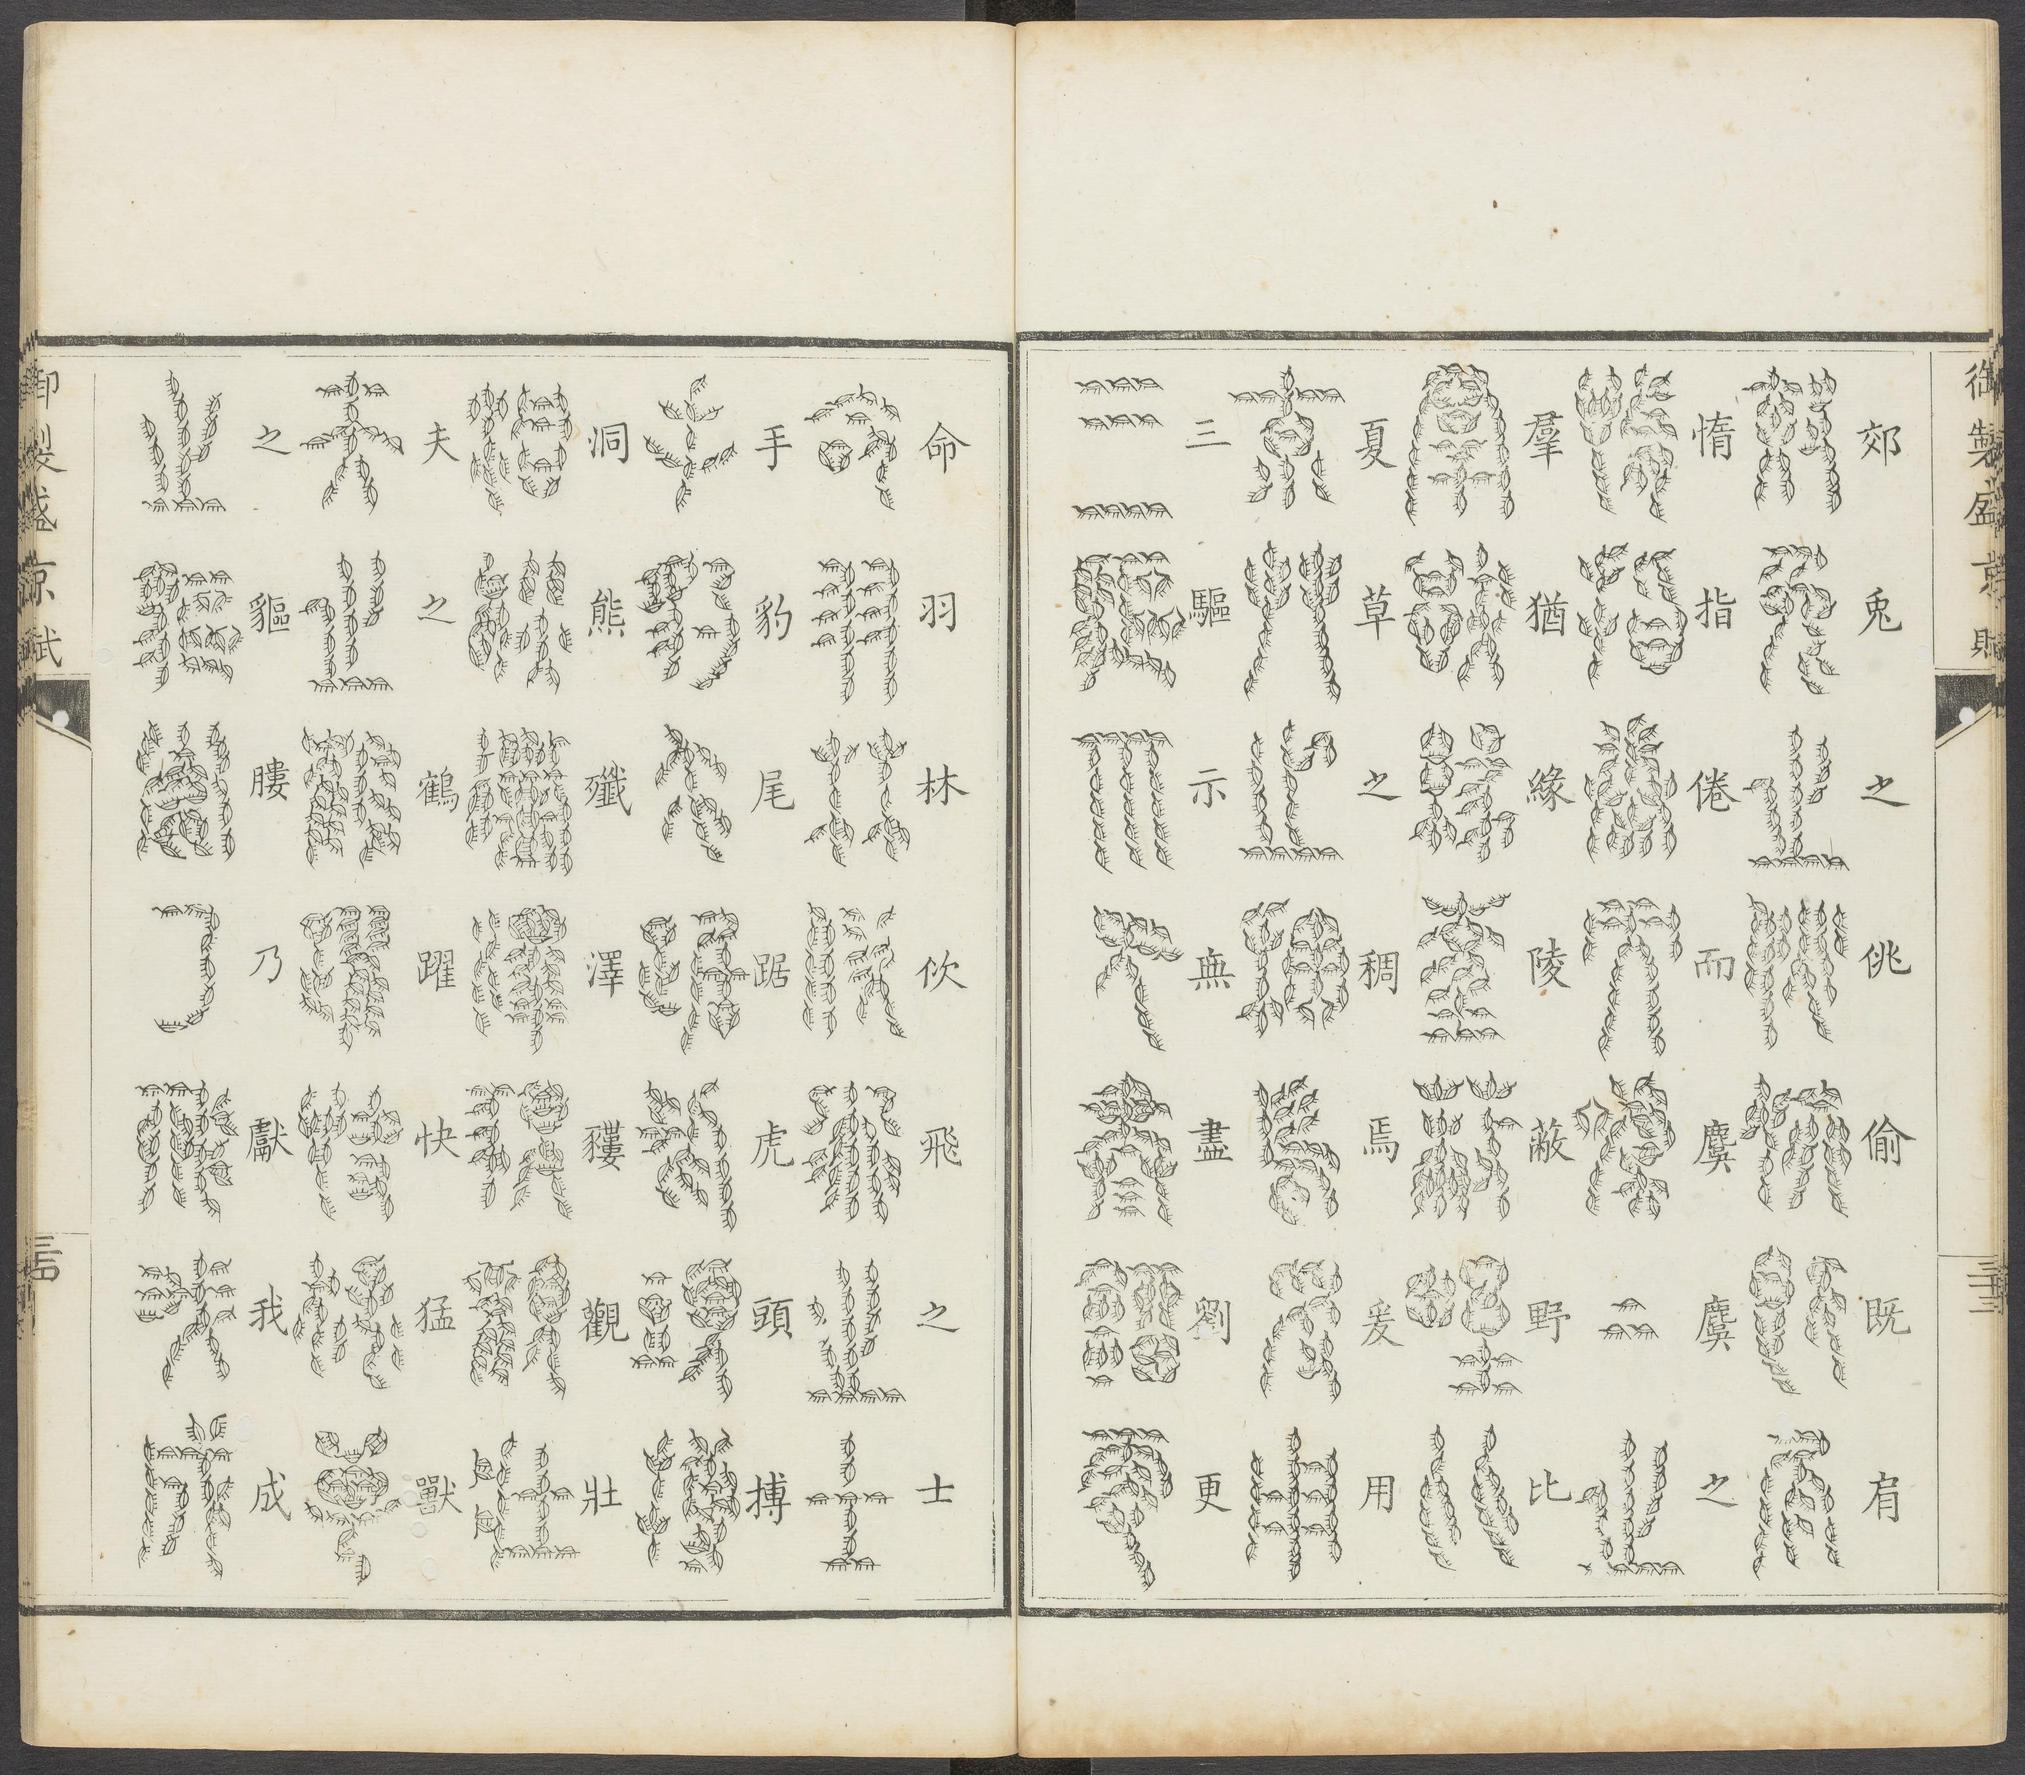 御製盛京賦
郊兎之佻偷既肩
惰指倦而麌麌之
羣猶緣陵蔽野比
夏草之稠焉爰用
三驅示無盡劉更
三十三
命羽林佽飛之士
手豹尾踞虎頭搏
洞熊殲澤貗觀壯
夫之鶴躍快猛獸
之貙膢乃獻我成
御製盛京賦
三十四